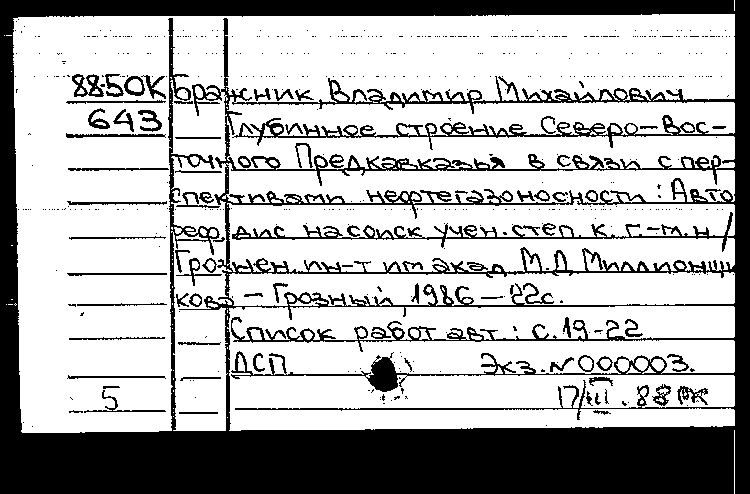 88-50К Бражник, Владимир Михайлович
643 Глубинное строение Северо-Вос-
точного Предкавказья в связи с пер-
спективами нефтегазоносности: Авто
реф. дис. на соиск. учен. степ. к. г.-м. н /
Грознен. ин-т им акад. М.Д Миллионщи
кова. – Грозный, 1986 – 22с.
Список работ авт.: с. 19-22
ДСП. Экз. N 000003.
5 17/III. 88